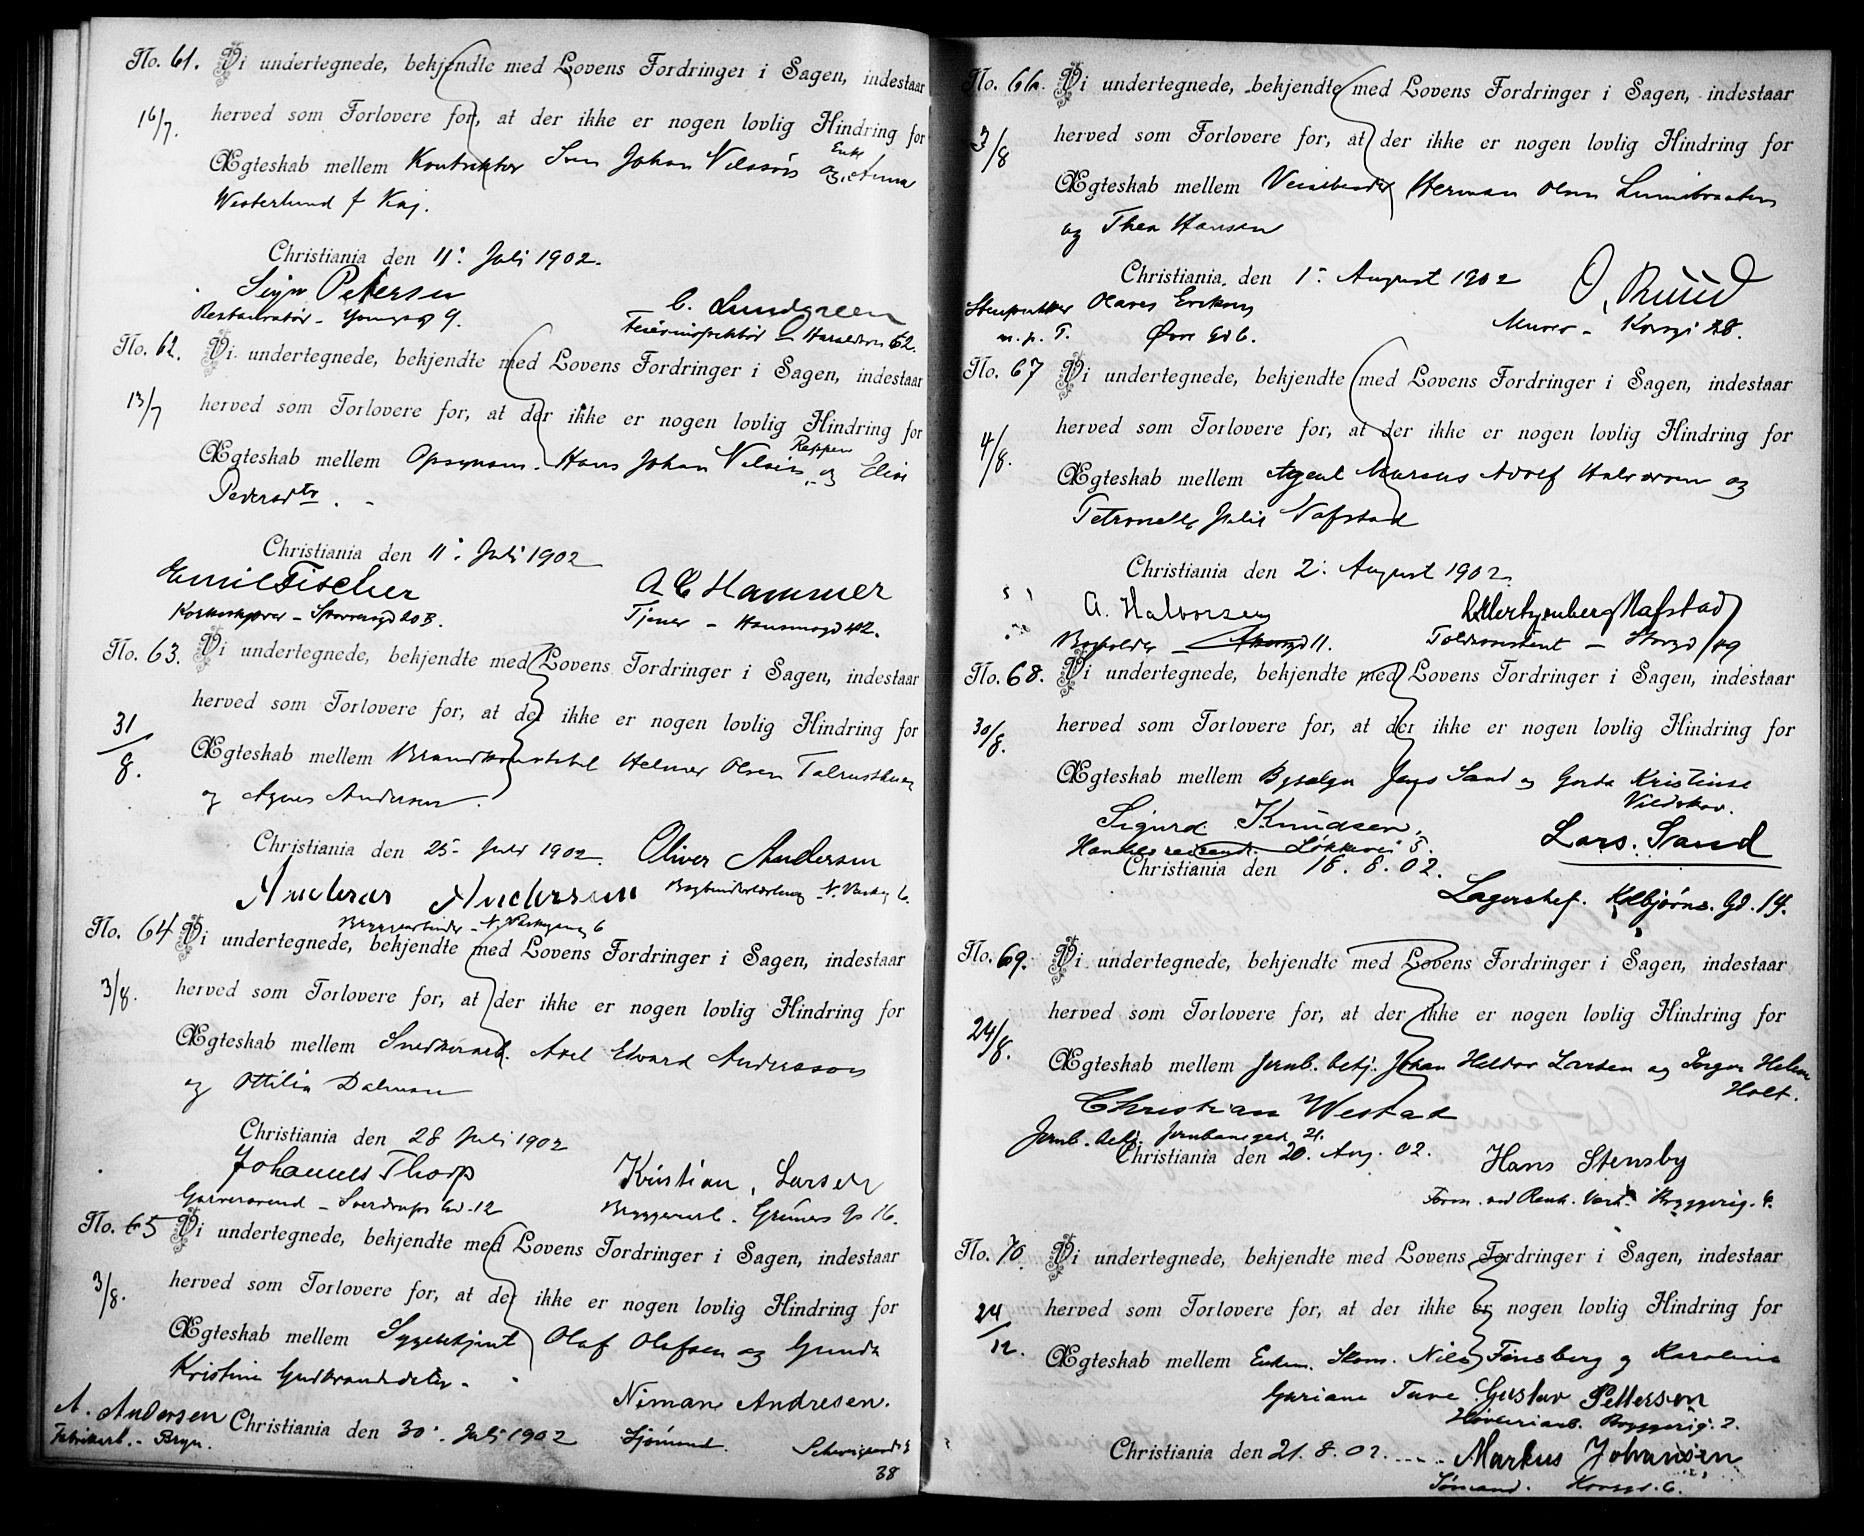 No. 61. Vi undertegnede, bekjendte med Lovens Fordringer i Sagen, indestaar
16/7. herved som Forlovere for, at der ikke er nogen lovlig Hindring for
Enke
Ægteskab mellem Johan Nilssøn og Anna
Westerlund f Kaj.
Christiania den 11. Juli 1902.
Petersen
C. Lundgreen
Restauratør - Youngsg 9.
62.
No. 62. Vi undertegnede, bekjendte med Lovens Fordringer i Sagen, indestaar
13/7 herved som Forlovere for, at der ikke er nogen lovlig Hindring for
Reppen
Ægteskab mellem Opsynsm. Hans Johan Nilsen og Elise
Pedersdtr.
Christiania den 11. Juli 1902
Emil Fischer
A C Hammer
Tjener - Hausmsgd 42.
No. 63. Vi undertegnede, bekjendte med Lovens Fordringer i Sagen, indestaar
31/8. herved som Forlovere for, at der ikke er nogen lovlig Hindring for
Ægteskab mellem Brandkonstabel Helmer Olsen
og Agnes Andersen.
Christiania den 25. Juli 1902. Oliver Andersen
Anderas Andersen
N. Vaskeg 6.
6
No. 64 Vi undertegnede, bekjendte med Lovens Fordringer i Sagen, indestaar
3/8. herved som Forlovere for, at der ikke er nogen lovlig Hindring for
Ægteskab mellem Snedkerarb. Axel Edvard Andersson
og Ottilia Dalman
Christiania den 28 Juli 1902
Johannes Thorp
Kristian Larsen
Garversvend - Sverdrups Gd. 12
Bryggerarb. Grüners Gd 16.
No. 65 Vi undertegnede, bekjendte med Lovens Fordringer i Sagen, indestaar
3/8. herved som Forlovere for, at der ikke er nogen lovlig Hindring for
Ægteskab mellem Sygebetjent Olaf Olafsen og Gunda
Kristine Gudbrandsdatter.
Niman Andresen.
A. Andersen Christiania den 30. Juli 1902 Sjømand.
Fabrikarb. - Bryn.
38
No. 66. Vi undertegnede, bekjendte med Lovens Fordringer i Sagen, indestaar
3/8 herved som Forlovere for, at der ikke er nogen lovlig Hindring for
Ægteskab mellem Herman Olsen
og Thea Hansen
Christiania, den 1. August 1902 O. Ruud
Olaves
m. p. P. Øvre Gd 6.
Murer - Korsgd 28.
No. 67 Vi undertegnede, bekjendte med Lovens Fordringer i Sagen, indestaar
4/8. herved som Forlovere for, at der ikke er nogen lovlig Hindring for
Ægteskab mellem Agent Marcus Adolf Halvorsen og
Petronelle Julie Nafstad
Christiania den 2. August 1902.
A. Halvorsen
Nafstad
Bogholder 11.
Toldassistent - Storgd 49
No. 68. Vi undertegnede, bekjendte med Lovens Fordringer i Sagen, indestaar
30/8. herved som Forlovere for, at der ikke er nogen lovlig Hindring for
Ægteskab mellem Jens Sand og Gerda Kristine
Vildskov.
Sigurd Knudsen.
Lars. Sand
Handelsreisende. Løkkevei 5.
Christiania den 18. 8. 02.
Lagerchef. Kolbjørns. Gd. 14.
No. 69. Vi undertegnede, bekjendte med Lovens Fordringer i Sagen, indestaar
24/8. herved som Forlovere for, at der ikke er nogen lovlig Hindring for
Ægteskab mellem Jernb. betj. Johan Heldor Larsen og Inger Helene
Holt.
Christian Westad
Jernb. betj. Jernbanegad. 21.
Christiania den 20. Aug. 02. Hans Stensby
Form. ved Renh. Bryggerig. 4.
No. 70. Vi undertegnede, bekjendte med Lovens Fordringer i Sagen, indestaar
24/12. herved som Forlovere for, at der ikke er nogen lovlig Hindring for
Ægteskab mellem Enkem. Skom. Nils Finsberg og Karoline
Gustav Pettersen
Høvleriarb. Bryggerig. 2.
Christiania den 21. 8. 02. Markus Johansen
Sømand. Korsgd. 6.